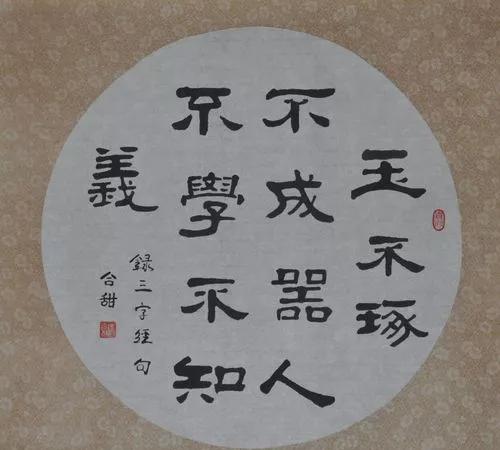 玉不琢
不成器人
不學不知
義
錄三字經句
合甜